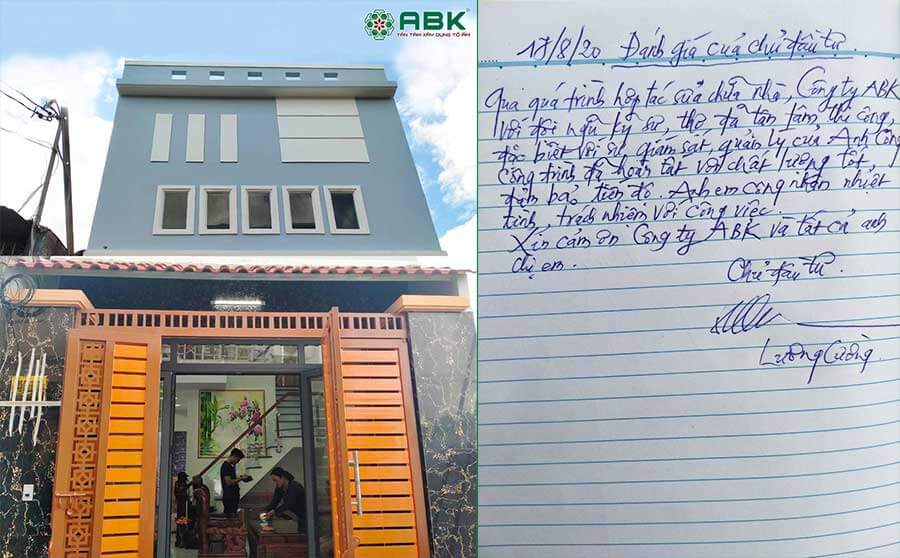 ABK
TẬN TÂM XÂY DỰNG TỔ ẤM
17/8/20 Đánh giá của chủ đầu tư
Qua quá trình hợp tác sửa chữa nhà, Công ty ABK
với đội ngũ kỹ sư, thợ đã tận tâm thi công,
đặc biệt với sự giám sát, quản lý của Anh Công
Công trình đã hoàn tất với chất lượng tốt,
đảm bảo tiến độ. Anh em công nhân nhiệt
tình, trách nhiệm với công việc.
Xin cảm ơn Công ty ABK và tất cả anh
chị em.
Chủ đầu tư.
Lương Cường